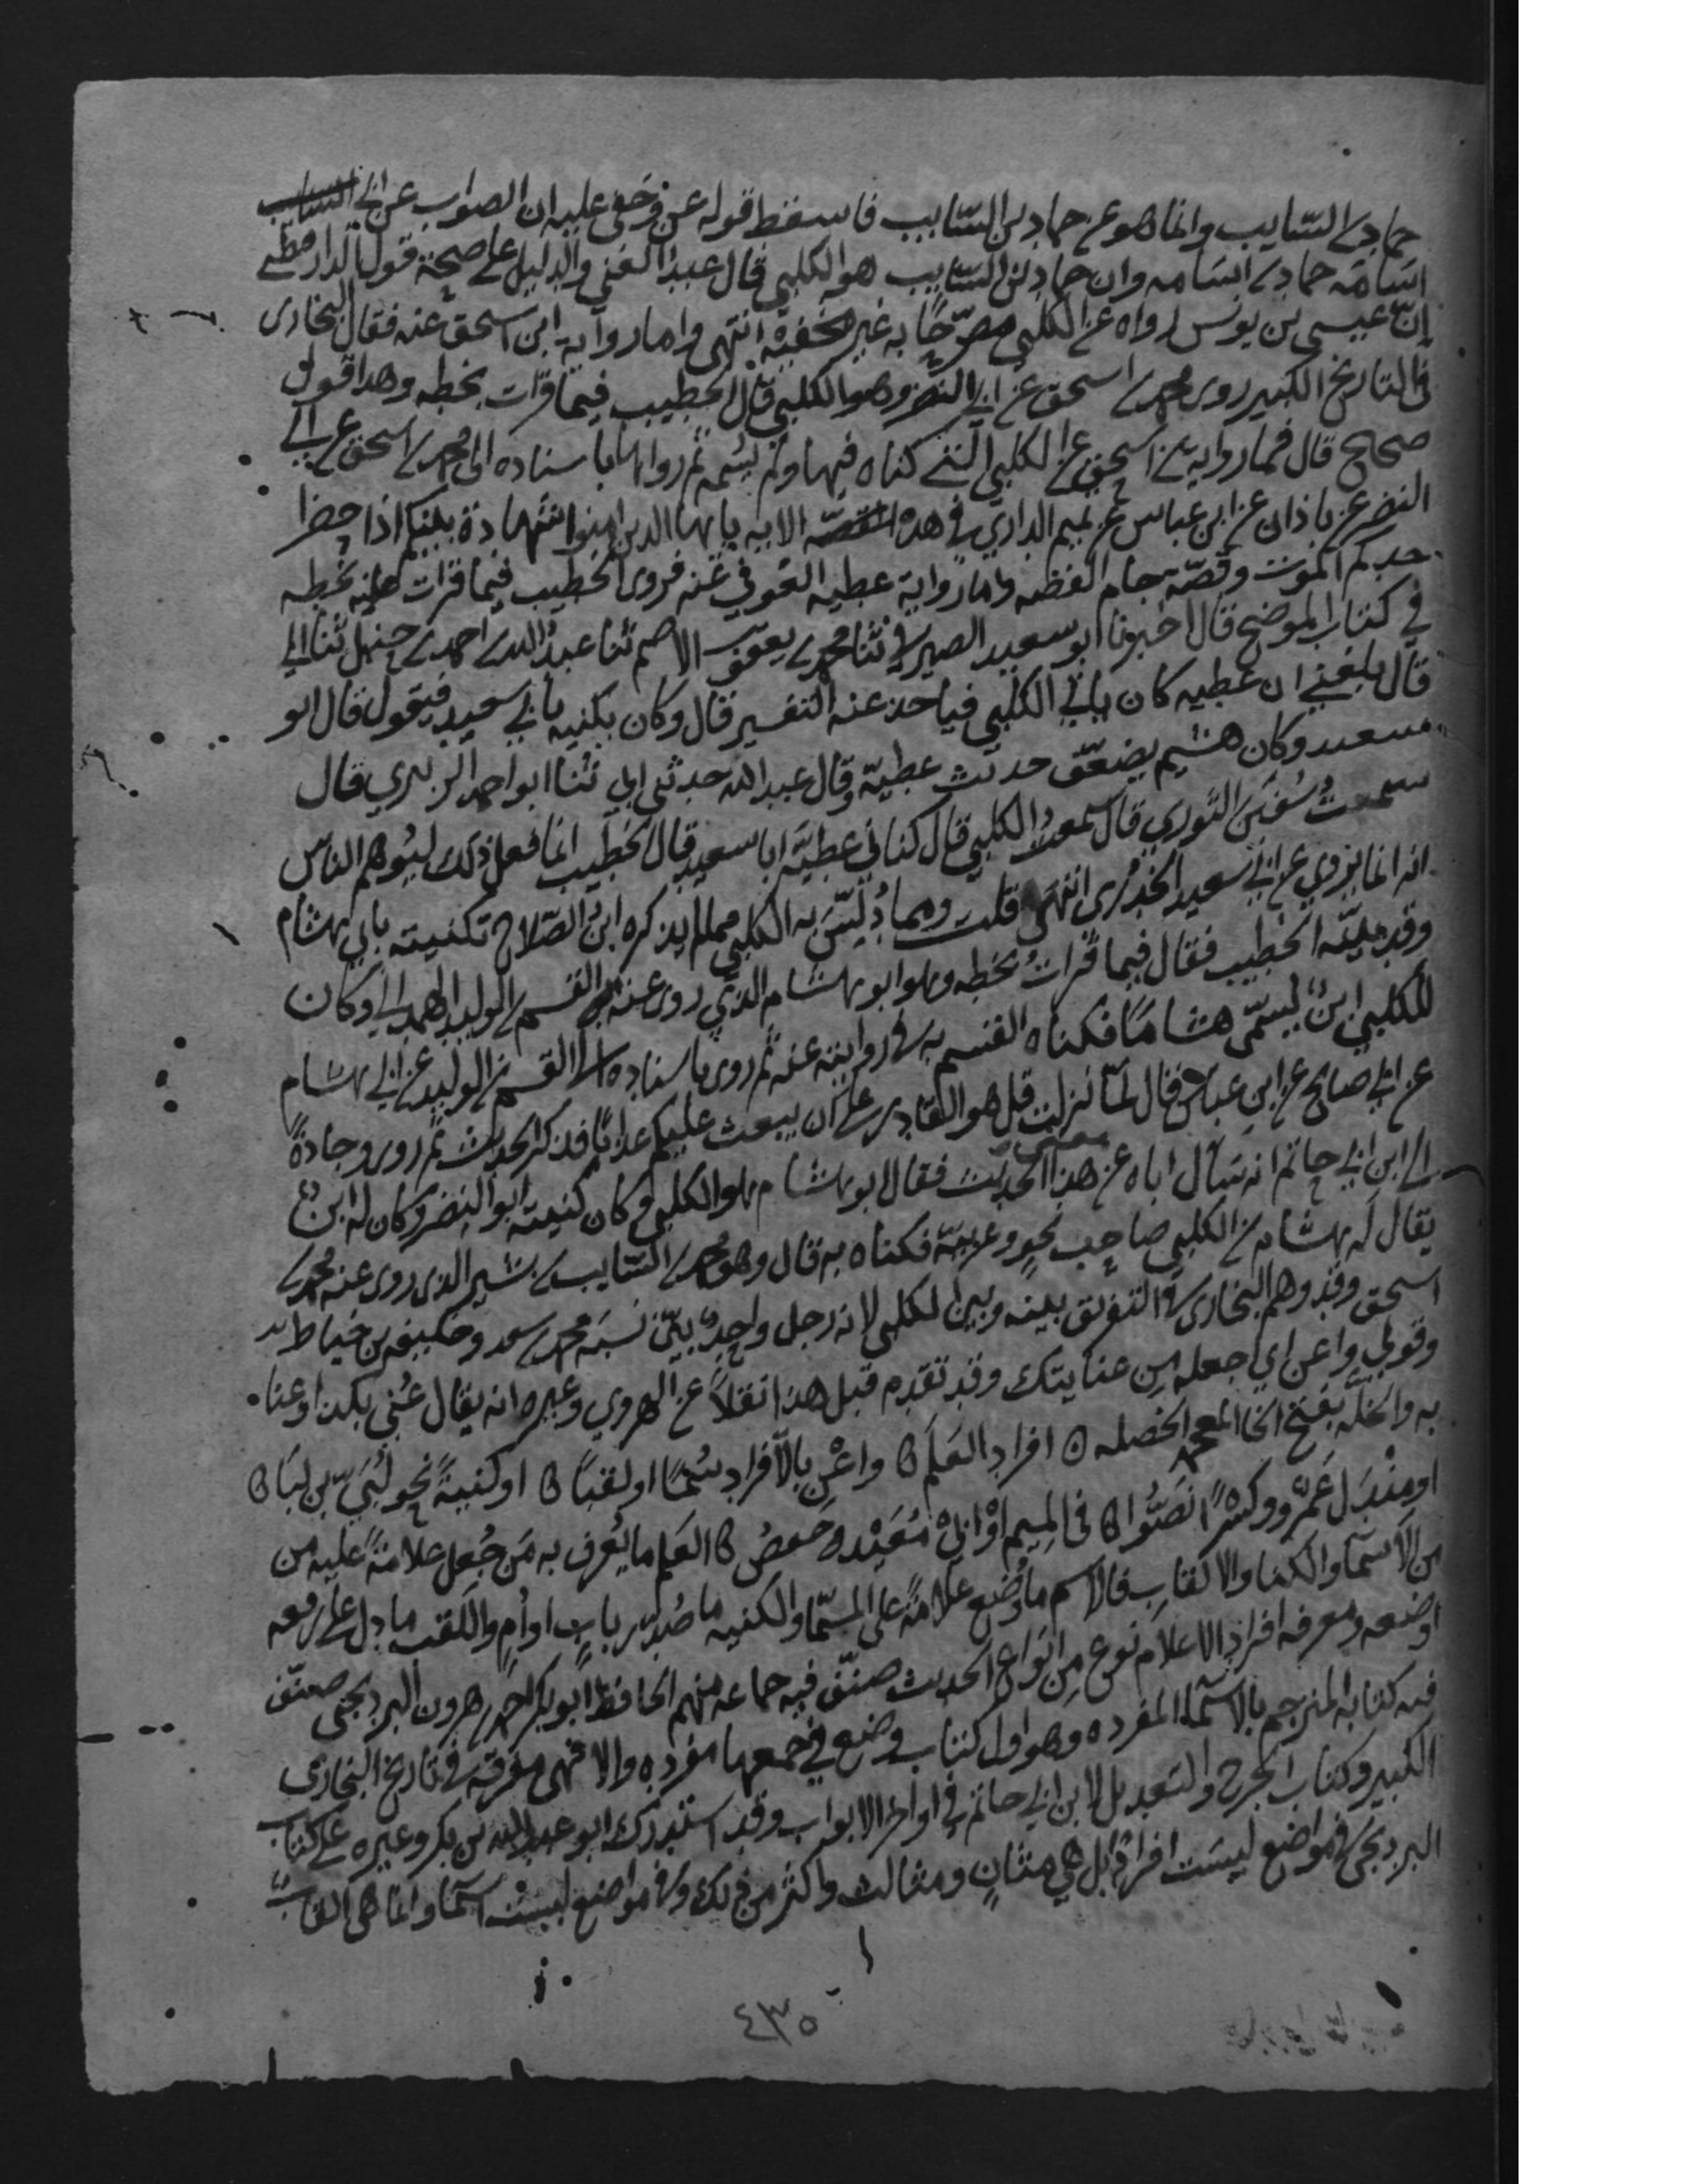 حماد بن السّايب وانما هو عن حماد بن السّايب فاسقط قوله عن وخفي عليه ان الصواب عن ابي
اسَامَة حماد بن اسَامه وان حماد بن السّايب هو الكلبي قال عبد الغني والدليل على صحّة قول الدارقطني
انّ عيسى بن يونس رواه عن الكلبي مصرّحًا به غير مخفيه انتهى واما رواية ابن اسحق عنه فقال البخارى
في التاريخ الكبير روى محمد بن اسحق عن ابي النضر وهو الكلبي قال الخطيب فيما قرات بخطه وهذا قول
صحيح قال فمما رواية بن اسحق عن الكلبي التي كناه فيها ولم يسّمه ثم رواها باسناده الى محمد بن اسحق عن ابي
النضر عن باذان عن ابن عباس عن تميم الداري في هذه الايه يايها الذين امنوا شهادة بينكم اذا حضر ا
حدكم الموت وقصّة جام الفضه واما رواية عطيه العوفي عنه فروى الخطيب فيما قرات عليه بخطه
في كتاب الموضح قال اخبرنا ابو سعيد الصيرفي ثنا محمد بن يعقوب الاصم ثنا عبد الله بن احمد بن حنبل ثنا ابي
قال بلغني ان عطيه كان ياتي الكلبي فياخذ عنه التفسير قال وكان يكنيه بابي سعيد فيقول قال ابو
سعيد وكان هشيم يضعّف حديث عطيّة وقال عبد الله حدثني ابي ثنا ابو احمد الزبيري قال
سمعتُ سُفيَن الثوري قال سمعت الكلبي قال كناني عطيّة ابا سعيد قال الخطيب انما فعل ذلك ليُوهم الناس
انه انما يروي عن ابي سعيد الخدُري انتهى قلت ومما دُلّسَ به الكلبي مما لم يذكره ابن الصّلاح تكنيته بابي هشام
وقد بيّنه الخطيب فقال فيما قراتُ بخطه وهو ابو هشام الذي روى عنه القسم بن الوليد الهمداني وكان
للكلبي ابنٌ يسمّى هشامًا فكناه القسم به في روايته عنه ثم روى باسناده الى القسم بن الوليد عن ابي هشام
عن ابي صالح عن ابن عباس قال لمّا نزلت قل هو القادر على ان يبعث عليكم عذابًا فذكر الحديث ثم روى وجادةً
الى ابن ابي حاتم انه سَال اباه عن هذا الحديث فقال ابو هشام هو الكلبي وكان كنيته ابو النضر وكان له ابنٌ
يقال له هشام بن الكلبي صاحب نحو وعربيّة فكناه به قال وهو محمد بن السّايب بن بشير الذى روى عنه محمد بن
اسحق وقد وهم البخارى في التفريق بينه وبين الكلبي لانه رجل واحدٌ بيّن نسبَه محمد بن سعد وخليفه بن خياط
وقولي واعن اي اجعله من عنايتك وقد تقدم قبل هذا نقلاً عن الهروي وغيره انه يقال عُني بكذا وعنا
به والخَلّه بفتح الخا المعجمه الخصله ٥ افراد العَلَم واعْنِ بالآفراد سُمًا او لقبًا او كنيةً نحو لُبَيّ بن لبَا
او مِنْدَل عَمْرٌو وكسْرًا نصّوا في الميم اوْ ابي مُعَيْد حَفصٌ العَلم ما يُعرف به مَن جُعل علامةً عليه من
من الاسما والكنا والالقاب فالاسم ما وُضع علامةً على المسمّا والكنيه ما صُدّر باب او اُم واللقب ما دل على رفعه
او ضعه ومعرفه افراد الاعلام نوع من انواع الحديث صنّف فيه جماعه منهم الحافظ ابو بكر احمد بن هرون البرديجي صنّف
فيه كتابه المترجم بالاسما المفرده وهو اول كتاب وضع في جمعها مفرده والا فهي مفرقه في تاريخ البخارى
الكبير وكتاب الجرح والتعديل لابن ابي حاتم في اواخر الابواب وقد استدرك ابو عبد الله بن بكير وغيره على كتاب
البرديجي في مواضع ليسَت افرادا بل هي مثانٍ ومثالث واكثر من ذلك وفي مواضع ليسَت اسما وانما هي القابٌ
٤٣٥